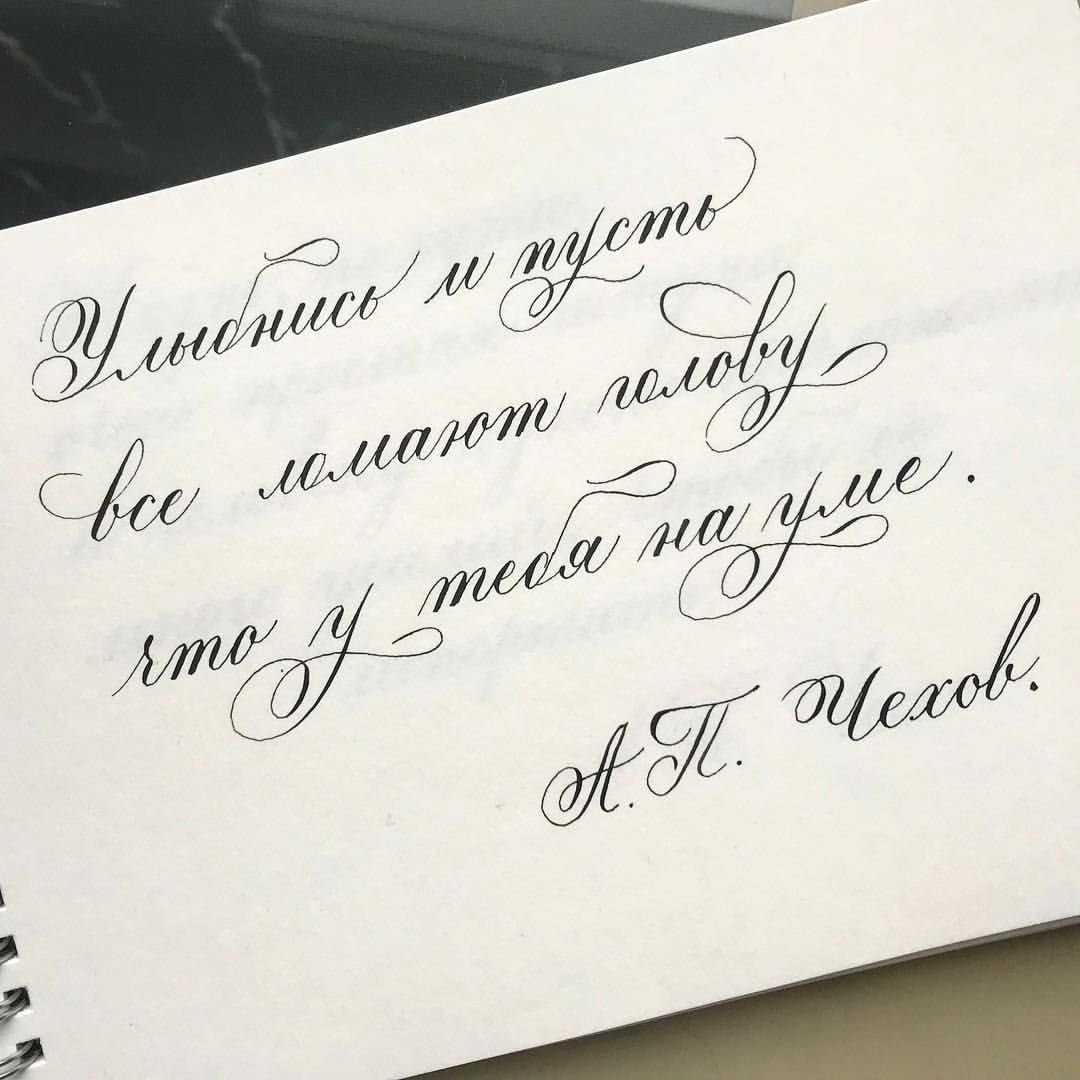 Улыбнись и пусть
все ломают голову
что у тебя на уме.
А.П. Чехов.